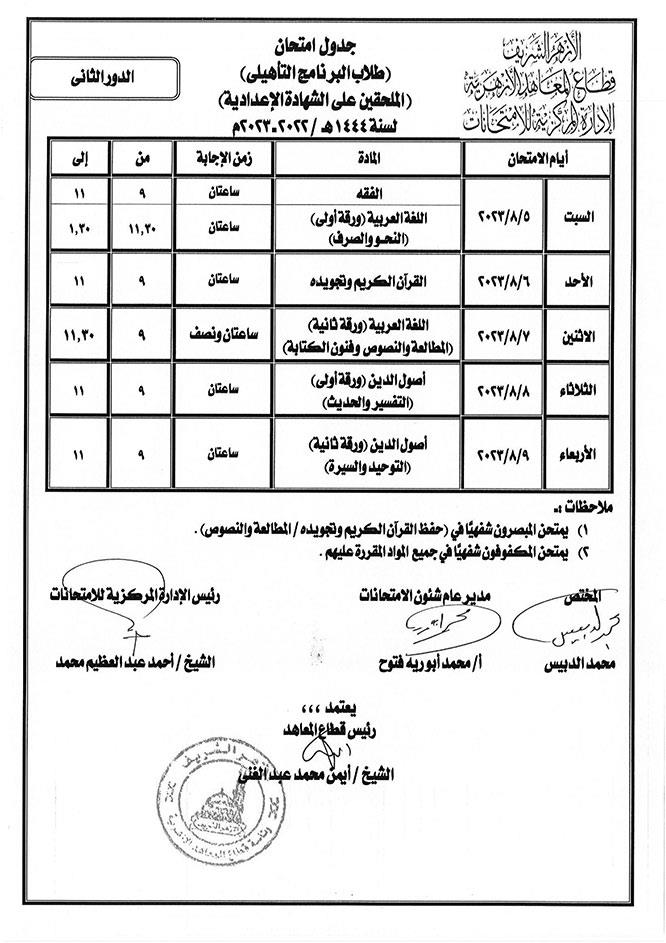 الأزهر الشريف
قطاع المعاهد الأزهرية
الإدارة المركزية للامتحانات
جدول امتحان
(طلاب البرنامج التأهيلى)
(الملحقين على الشهادة الإعدادية)
لسنة ١٤٤٤هـ / ٢٠٢٢-٢٠٢٣م
الدور الثانى
أيام الامتحان المادة زمن الإجابة من إلى
السبت ٢٠٢٣/٨/٥ الفقه ساعتان ٩ ١١
اللغة العربية (ورقة أولى) ساعتان ١١,٣٠ ١,٣٠
(النحو والصرف)
الأحد ٢٠٢٣/٨/٦ القرآن الكريم وتجويده ساعتان ٩ ١١
الاثنين ٢٠٢٣/٨/٧ اللغة العربية (ورقة ثانية) ساعتان ونصف ٩ ١١,٣٠
(المطالعة والنصوص وفنون الكتابة)
الثلاثاء ٢٠٢٣/٨/٨ أصول الدين (ورقة أولى) ساعتان ٩ ١١
(التفسير والحديث)
الأربعاء ٢٠٢٣/٨/٩ أصول الدين (ورقة ثانية) ساعتان ٩ ١١
(التوحيد والسيرة)
ملاحظات :-
١) يمتحن المبصرون شفهيًا في (حفظ القرآن الكريم وتجويده / المطالعة والنصوص) .
٢) يمتحن المكفوفون شفهيًا في جميع المواد المقررة عليهم .
المختص مدير عام شئون الامتحانات رئيس الإدارة المركزية للامتحانات
محمد الدبيس أ/ محمد أبورية فتوح الشيخ / أحمد عبد العظيم محمد
يعتمد ,,,
رئيس قطاع المعاهد
الشيخ / أيمن محمد عبد الغنى
الأزهر الشريف
رئاسة قطاع المعاهد الأزهرية